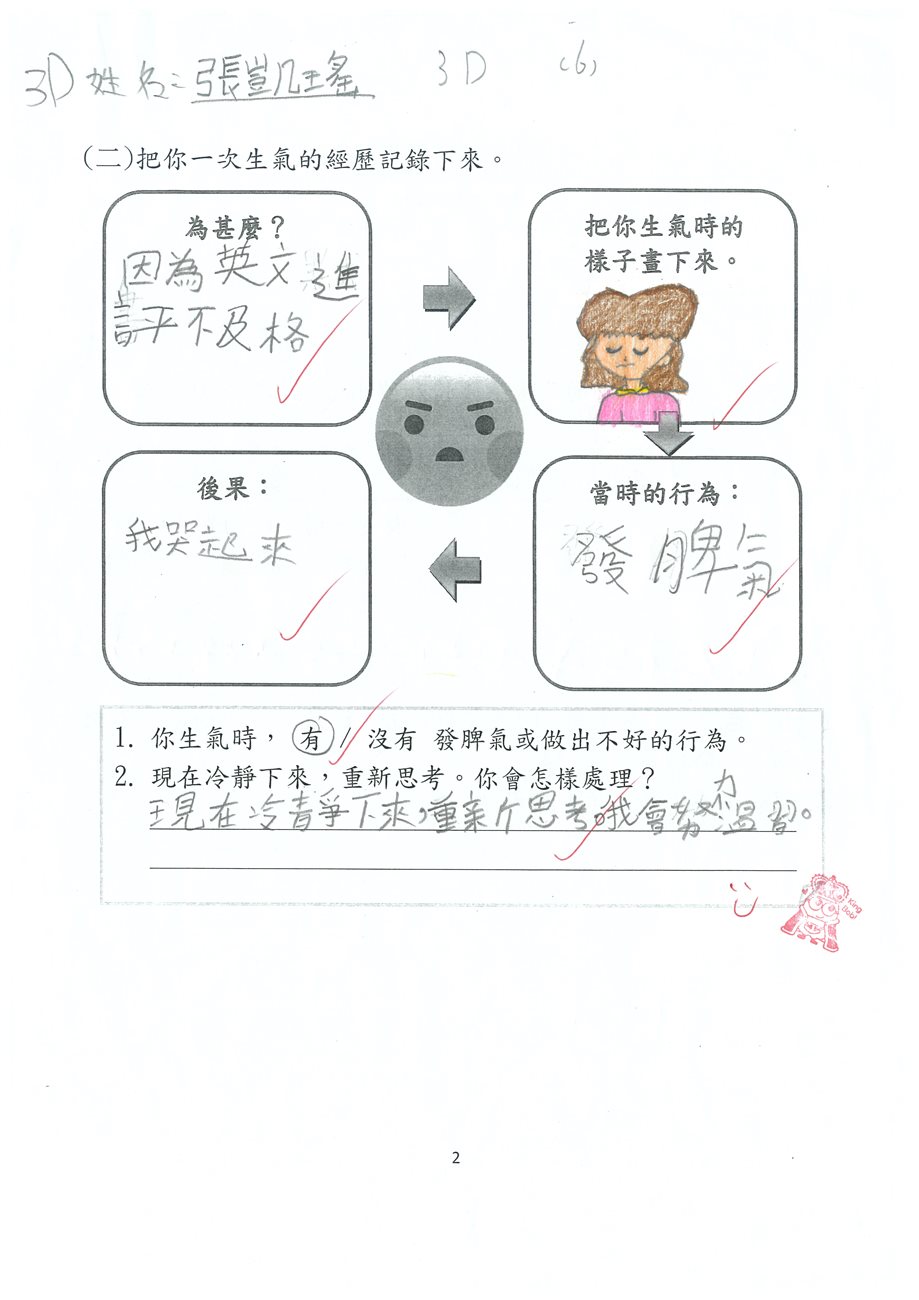 3D 姓名：張凱瑤 3D (6)
(二)把你一次生氣的經歷記錄下來。
為甚麼？
因為英文進
評不及格
把你生氣時的
樣子畫下來。
當時的行為：
發脾氣
後果：
我哭起來
1. 你生氣時，有/ 沒有 發脾氣或做出不好的行為。
2. 現在冷靜下來，重新思考。你會怎樣處理？
現在冷靜下來，重新思考。我會努力溫習。
King Bob!
2